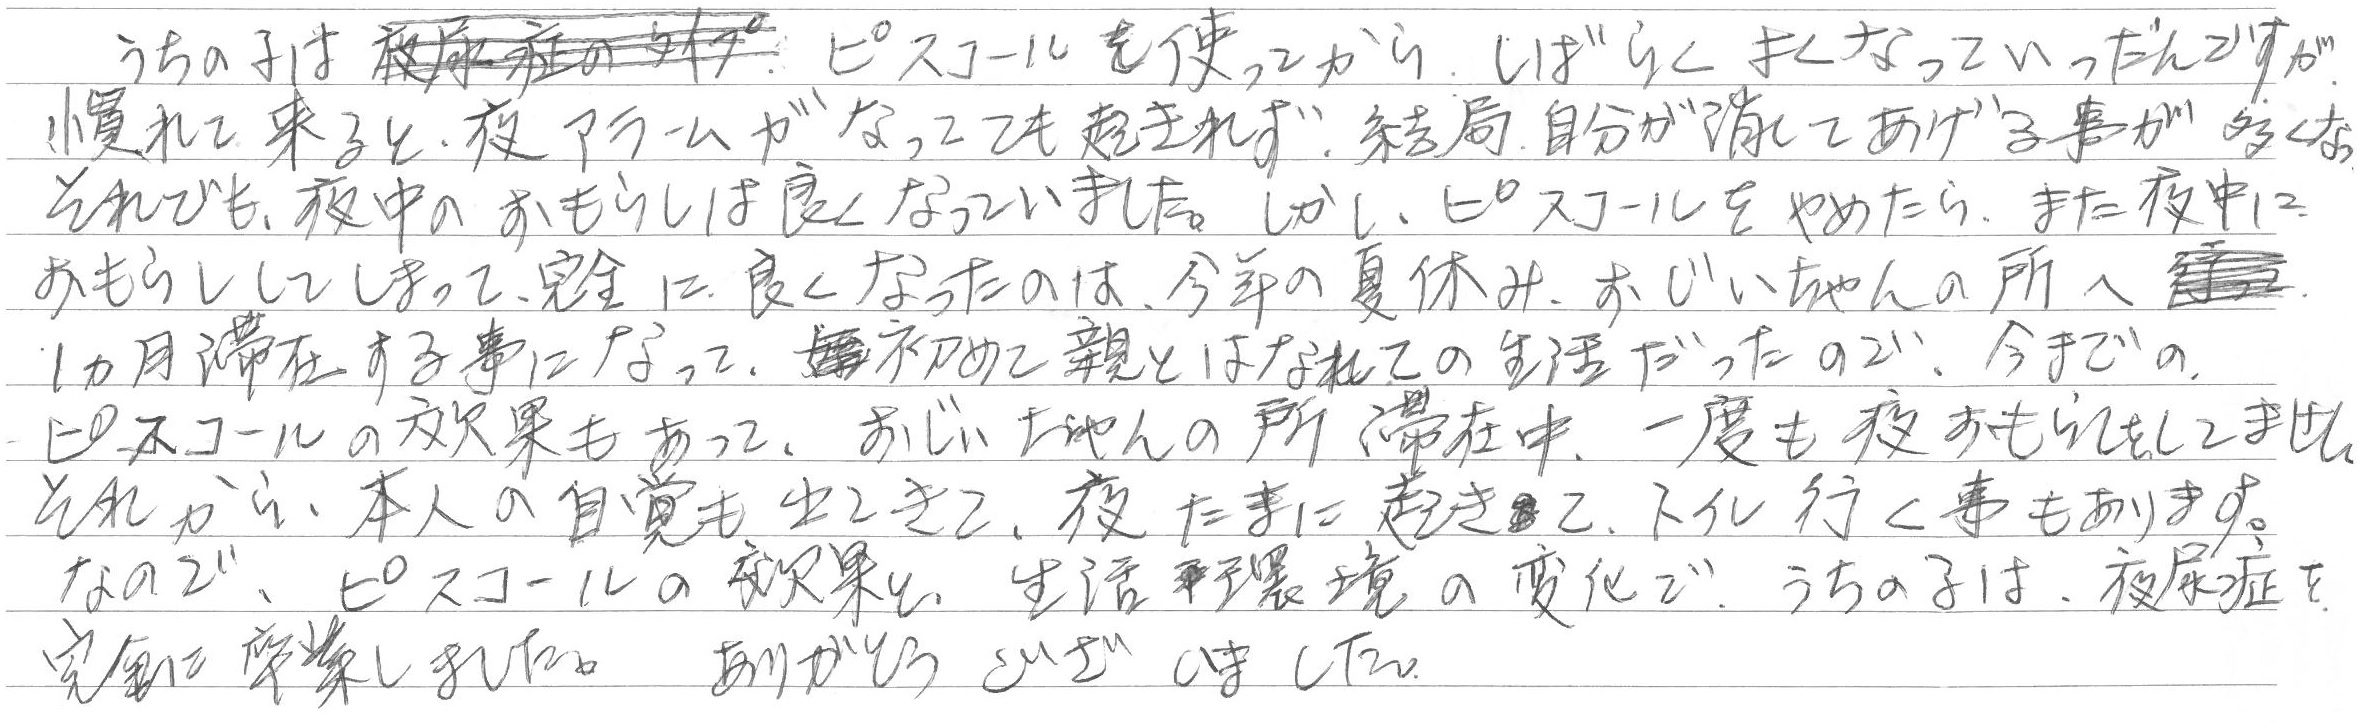 うちの子は ピスコールを使ってから、しばらくよくなっていっだんですが、
慣れて来ると、夜アラームがなってても起きれず、結局、自分が消してあげる事が多くなっ
それでも、夜中のおもらしは良くなっていました。しかし、ピスコールをやめたら、また夜中に
おもらししてしまって、完全に良くなったのは、今年の夏休み、おじいちゃんの所へ
1ヵ月滞在する事になって、初めて親とはなれての生活だったので、今までの、
ピスコールの効果もあって、おじいちゃんの所滞在中、一度も夜おもらしをしてません。
それから、本人の自覚も出てきて、夜たまに起きて、トイレ行く事もあります。
なので、ピスコールの効果と、生活環境の変化で、うちの子は、夜尿症を
完全に卒業しました。 ありがとうございました。